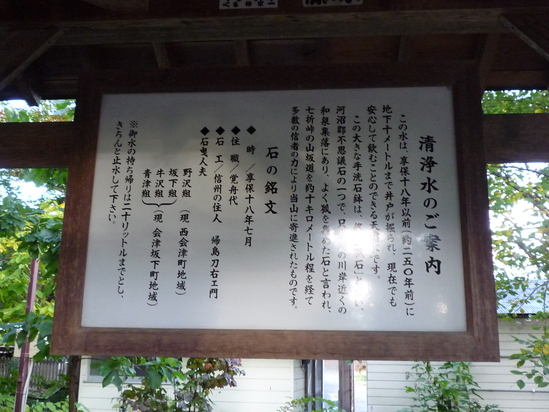 清浄水のご案内
この水は、享保十八年以前(約二五〇年前)に
地下十メートルまで井戸が掘され、現在でも
安心して飲むことのできる天
です。
この大きな手洗石鉢は、
石」と
い、
河沼郡不思議石の一つで、只
の川岸近くの
和泉集落にあり、よく狐を
めた石と言われ、
七折峠の山坂道を約十キロメートル程を経て
多数の信者の力により当山に寄進されたものです。
石の銘文
◆ 時/享保十八年七月
◆住 職/覚舟代
◆石 工/信州の住人 帰島刀右エ門
◆石曳人夫
野沢組 (現 西会津町地域)
坂下組
牛沢組 (現 会津坂下町地域)
青津組
※御水の持ち帰りは二十リットルまでとし、
きちんと止水して下さい。